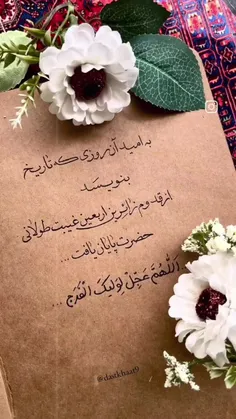 به امید آن روزی که تاریخ
بنویسد
از قدوم زائرین اربعین غیبت طولانی
حضرت پایان یافت...
اَللّهُمَّ عَجِّل لِوَلیِکَ الْفَرَج...